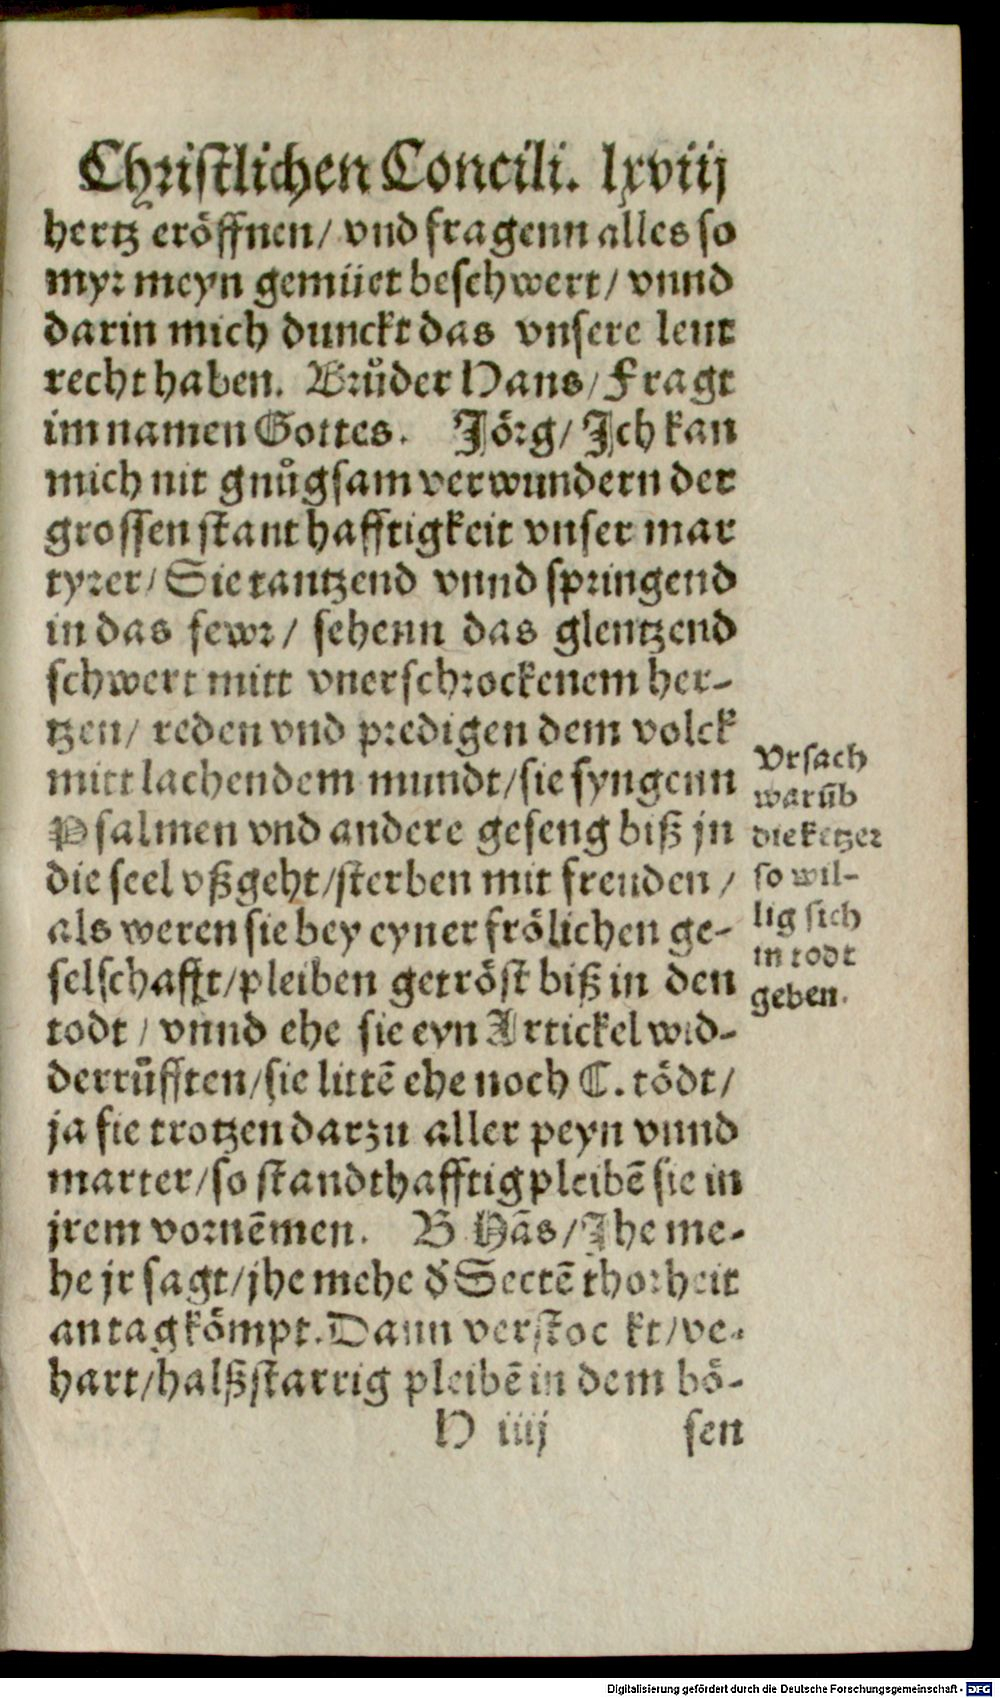 Christlichen Concili. lxviij
hertz eröffnen/ vnd fragenn alles so
myr meyn gemüet beschwert/ vnnd
darin mich dunckt das vnsere leut
recht haben. Brůder Hans/ Fragt
im namen Gottes. Jörg/ Jch kan
mich nit gnůgsam verwundern der
grossen stanthafftigkeit vnser mar
tyrer/ Sie tantzend vnnd springend
in das fewr/ sehenn das glentzend
schwert mitt vnerschrockenem her-
tzen/ reden vnd predigen dem volck
mitt lachendem mundt/sie syngenn
Psalmen vnd andere geseng biß jn
die seel vßgeht/sterben mit freuden/
als weren sie bey eyner frölichen ge-
selschafft/pleiben getröst biß in den
todt/ vnnd ehe sie eyn Artickel wid-
derrůfften/sie littē ehe noch C. tödt/
ja sie trotzen darzu aller peyn vnnd
marter/so standthafftig pleibē sie in
jrem vornēmen. B Hās/Jhe me-
he jr sagt/jhe mehe d' Sectē thorheit
an tag kömpt. Dann verstockt/ve-
hart/halßstarrig pleibē in dem bö-
H iiij sen
Vrsach
warūb
die ketzer
so wil-
lig sich
in todt
geben.
Digitalisierung gefördert durch die Deutsche Forschungsgemeinschaft - DFG